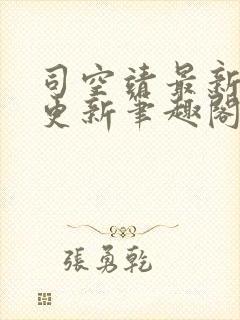 司空靖最新
更新笔趣閣
張勇乾